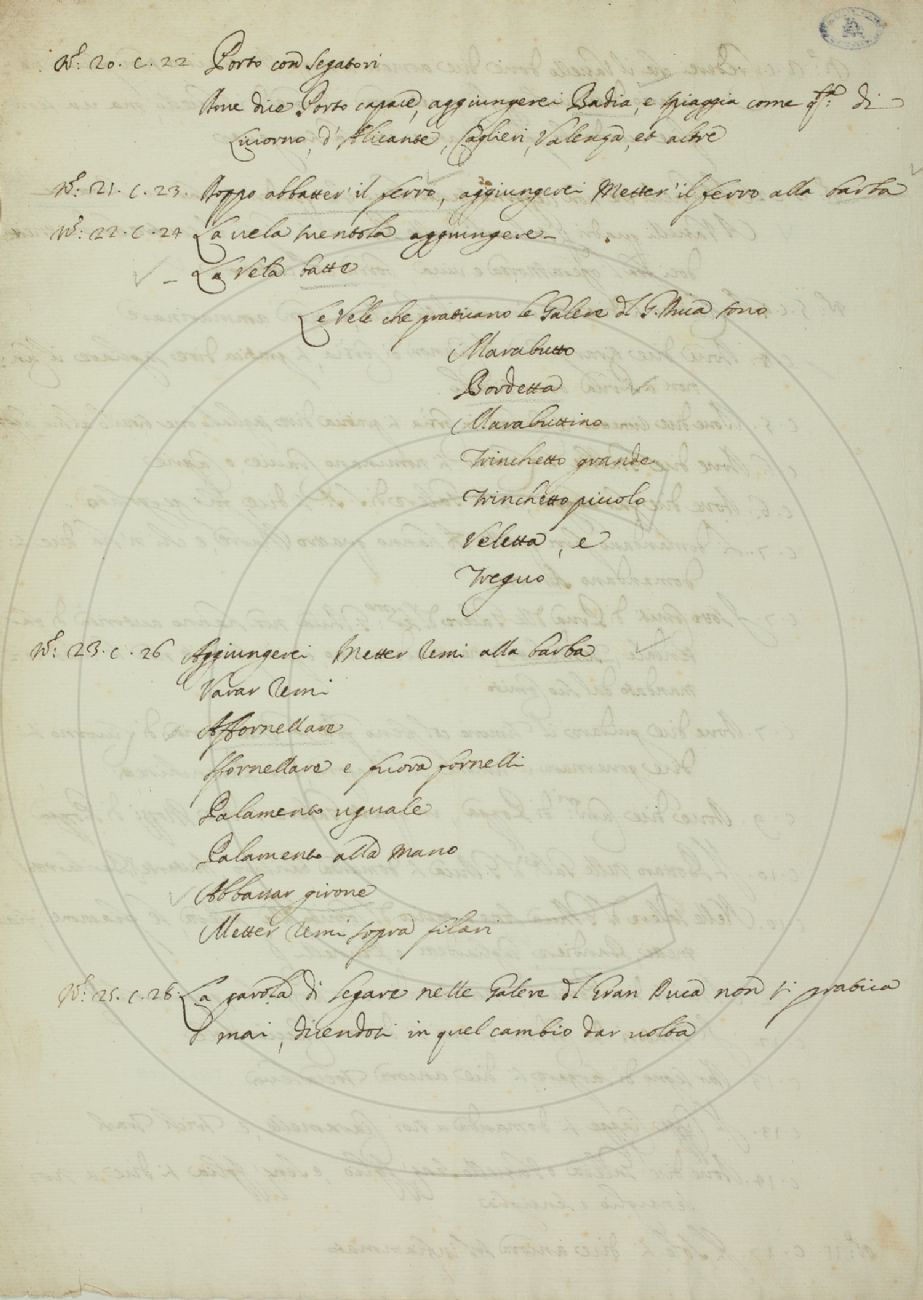 N.º 20. c. 22 Porto con segatori
Ove dice Porto capace, aggiungerci Badia, e spiaggia come q.ta di
Livorno, d'Alicante, Caglieri, Valenza, et altre
N.º 21. c. 23. Doppo abbatter il ferro, aggiungerci Metter il ferro alla barba
N.º 22. c. 24 La vela sventola aggiungere_
_ La Vela batte
Le Vele che praticano le Galere del G. Duca sono
Marabutto
Bordetta
Marabuttino
Trinchetto grande
Trinchetto piccolo
Veletta, e
Treguo
N.º 23. c. 26 Aggiungerci Metter remi alla barba
Varar remi
Affornellare
Sfornellare e fuora fornelli
Palamento uguale
Palamento alla mano
Abbattar girone
Metter remi sopra filari
N.º 25. c. 28. La parola di segare nelle Galere del Gran Duca non si pratica
mai, dicendosi in quel cambio dar volta